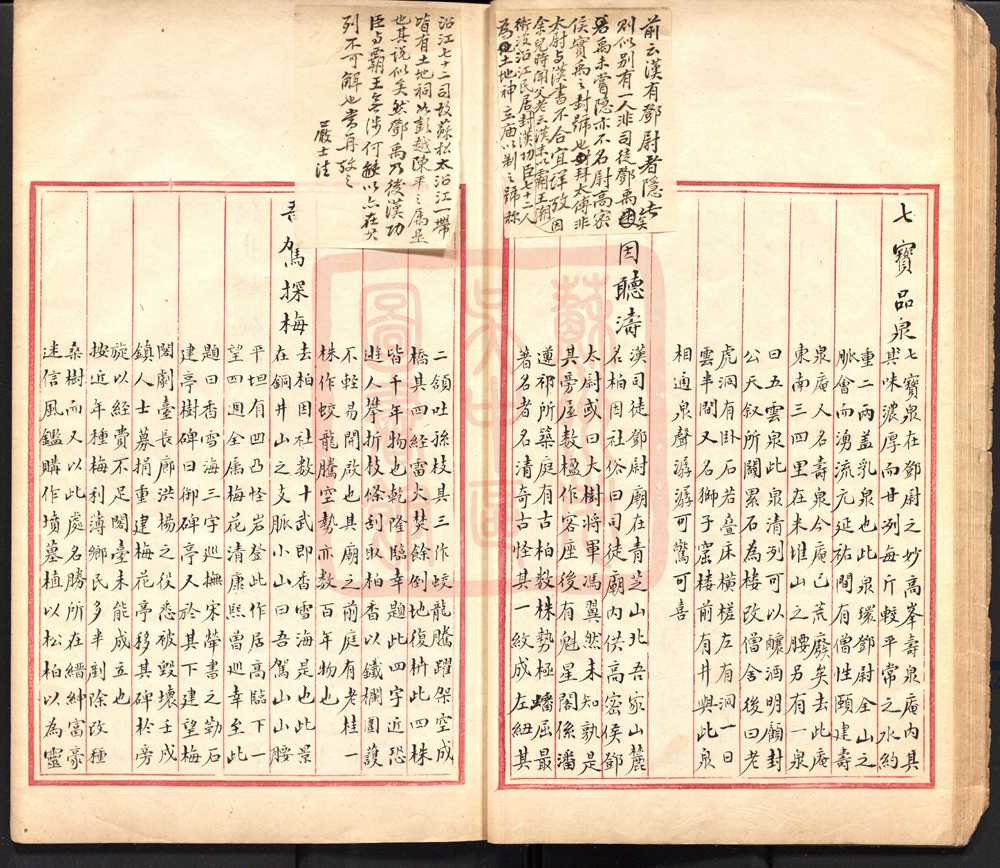 七寶品泉
七寶泉在鄧尉之妙高峯壽泉庵內其
泉其味濃厚而甘冽每斤較平常之水約
重二兩蓋乳泉也此泉環鄧尉全山之
脈會而湧流元延祐間有僧性頤建壽
泉庵人名壽泉今庵已荒廢矣去此庵
東南三四里在朱堆山之腰另有一泉
曰五雲泉此泉清冽可以釀酒明顧封
公天敘所闢累石為棲改僧舍後曰老
虎洞有臥石若疊床橫槎左有洞一曰
雲半間又名獅子窟棲前有井與此泉
相通泉聲潺潺可驚可喜
因聽濤
漢司徒鄧尉廟在青芝山北吾家山麓
名柏因社俗曰司徒廟內供高密侯鄧
太尉或曰大樹將軍馮翼然未知孰是
其旁屋數楹作客座後有魁星閣係潘
遵祁所築庭有古柏數株勢極蟠屈最
著名者名清奇古怪其一紋成左紐其
前云漢有鄧尉者隱此
則似別有一人非司徒鄧禹矣
若禹未嘗隱亦不名尉高密
侯實禹之封號也拜太傅非
太尉與漢書不合宜詳攷因
余兒時聞父老云漢末以霸王潮
衝沒沿江民居封漢功臣七十二人
為土地神立廟以制之號稱
沿江七十二司故蘇松太沿江一帶
皆有土地祠以彭越陳平之屬是
也其說似矣然鄧禹乃後漢功
臣與霸王無涉何能以亦在其
列不可解也當再攷之
嚴士法
二頷吐孫枝其三作蛟龍騰躍架空成
橋其四經雷火焚餘倒地復枿此四株
皆千年物也乾隆臨幸題此四字近恐
遊人攀折枝條刮取柏香以鐵欄圍護
不輕易開啟也其廟之前庭有老桂一
株作蛟龍騰空勢亦數百年物也
吾駕探梅
去柏因社數十武即香雪海是也此景
在銅井山之支脈小山曰吾駕山山腰
平坦有凹凸怪岩登此作居高臨下一
望四週全屬梅花清康熙曾巡幸至此
題曰香雪海三字巡撫宋犖書之勒石
建亭樹碑曰御碑亭又於其下建望梅
閣劇臺長廊洪楊之役悉被毀壞壬戌
鎮人士募捐重建梅花亭移其碑於旁
旋以經費不足閣臺未能成立也
按近年種梅利薄鄉民多半剷除改種
桑樹而又以此處名勝所在縉紳富豪
迷信風鑑購作墳墓植以松柏以為靈